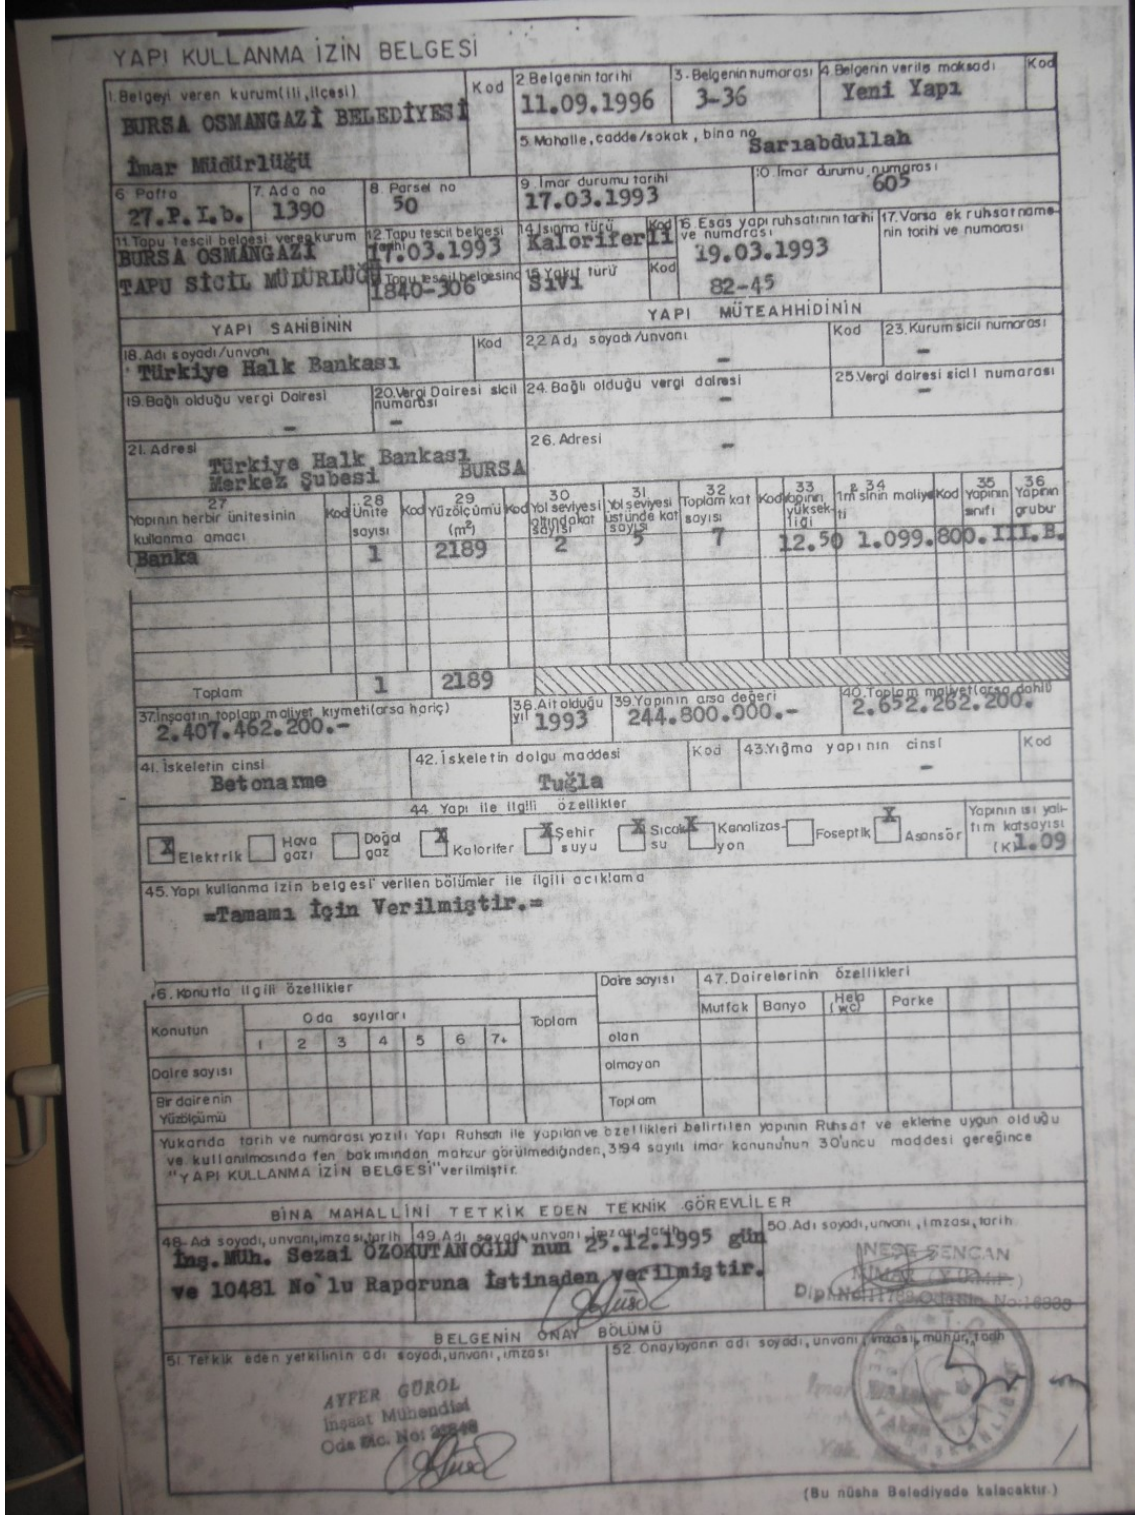 YAPI KULLANMA İZİN BELGESİ
1. Belgeyi veren kurum(ili, ilçesi)
Kod
BURSA OSMANGAZİ BELEDİYESİ
İmar Müdürlüğü
2 Belgenin tarihi
11.09.1996
3 - Belgenin numarası
3-36
4. Belgenin veriliş maksadı
Kod
Yeni Yapı
5. Mahalle, cadde/sokak, bina no
Sarıabdullah
6 Pafta
27.P.I.b.
7. Ada no
1390
8. Parsel no
50
9. İmar durumu tarihi
17.03.1993
10. İmar durumu numarası
605
11. Tapu tescil belgesi veren kurum
BURSA OSMANGAZİ
TAPU SİCİL MÜDÜRLÜĞÜ
12 Tapu tescil belgesi
17.03.1993
1840-306
14. Isıtma türü
Kod
Kaloriferli
15. Yakıt türü
Kod
Sıvı
16. Esas yapı ruhsatının tarihi
ve numarası
19.03.1993
82-45
17. Varsa ek ruhsatname-
nin tarihi ve numarası
YAPI SAHİBİNİN
YAPI MÜTEAHHİDİNİN
18. Adı soyadı/unvanı
Kod
Türkiye Halk Bankası
22 Adı soyadı/unvanı
Kod
-
23. Kurum sicil numarası
-
19. Bağlı olduğu vergi Dairesi
-
20. Vergi Dairesi sicil
numarası
-
24. Bağlı olduğu vergi dairesi
-
25. Vergi dairesi sicil numarası
-
21. Adresi
Türkiye Halk Bankası
Merkez Şubesi BURSA
26. Adresi
-
27
Yapının herbir ünitesinin
kullanma amacı
Kod
28
Ünite
sayısı
Kod
29
Yüzölçümü
(m²)
Kod
30
Yol seviyesi
altında kat
sayısı
31
Yol seviyesi
üstünde kat
sayısı
32
Toplam kat
sayısı
Kod
33
Yapının
yüksek-
liği
34
1m² sinin maliye
ti
Kod
35
Yapının
sınıfı
36
Yapının
grubu
Banka 1 2189 2 5 7 12.50 1.099.800. III.B.
Toplam 1 2189
37. İnşaatın toplam maliyet kıymeti(arsa hariç)
2.407.462.200.-
38. Ait olduğu
yıl 1993
39. Yapının arsa değeri
244.800.000.-
40. Toplam maliyet(arsa dahil)
2.652.262.200.
41. İskeletin cinsi
Betonarme
42. İskeletin dolgu maddesi
Kod
Tuğla
43. Yığma yapının cinsi
Kod
-
44 Yapı ile ilgili özellikler
X Elektrik
Hava gazı
Doğal gaz
X Kalorifer
X Şehir suyu
X Sıcak su
X Kanalizas-yon
Foseptik
X Asansör
Yapının ısı yalı-
tım katsayısı
(K) 1.09
45. Yapı kullanma izin belgesi verilen bölümler ile ilgili acıklama
=Tamamı İçin Verilmiştir.=
46. Konutla ilgili özellikler
Daire sayısı
47. Dairelerinin özellikleri
Konutun
Oda sayıları
Toplam
Mutfak Banyo Hela (wc) Parke
1 2 3 4 5 6 7+
olan
Daire sayısı
olmayan
Bir dairenin
Yüzölçümü
Toplam
Yukarıda tarih ve numarası yazılı Yapı Ruhsatı ile yapılan ve özellikleri belirtilen yapının Ruhsat ve eklerine uygun olduğu
ve kullanılmasında fen bakımından mahzur görülmediğinden, 3194 sayılı imar kanununun 30'uncu maddesi gereğince
"YAPI KULLANMA İZİN BELGESİ" verilmiştir.
BİNA MAHALLİNİ TETKİK EDEN TEKNİK GÖREVLİLER
48. Adı soyadı, unvanı, imzası, tarih
49. Adı soyadı, unvanı, imzası, tarih
50. Adı soyadı, unvanı, imzası, tarih
İnş.Müh. Sezai ÖZOKUTANOĞLU nun 25.12.1995 gün
ve 10481 No`lu Raporuna İstinaden verilmiştir.
NEŞE ŞENCAN
BELGENİN ONAY BÖLÜMÜ
51. Tetkik eden yetkilinin adı soyadı, unvanı, imzası
AYFER GÜROL
İnşaat Mühendisi
Oda Sic. No:
52. Onaylayanın adı soyadı, unvanı, imzası, mühür, tarih
(Bu nüsha Belediyede kalacaktır.)